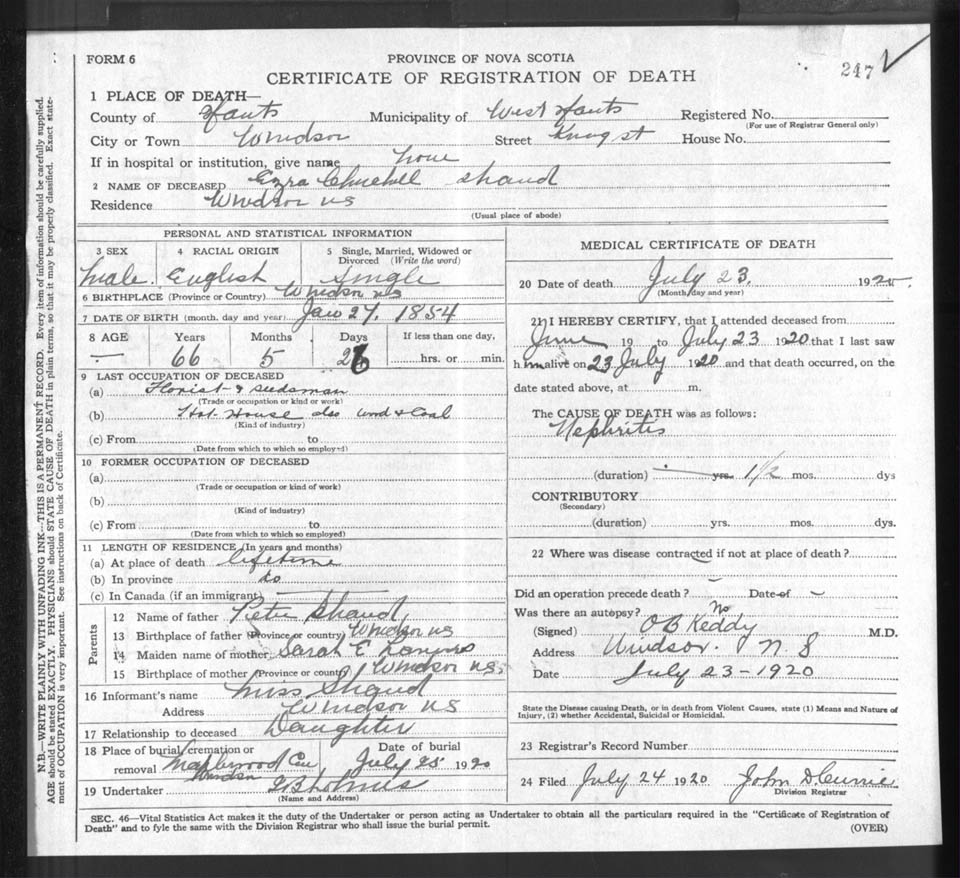 FORM 6
PROVINCE OF NOVA SCOTIA
CERTIFICATE OF REGISTRATION OF DEATH
247
1 PLACE OF DEATH—
County of Hants Municipality of West Hants Registered No.
(For use of Registrar General only)
City or Town Windsor Street King st House No.
If in hospital or institution, give name home
2 NAME OF DECEASED Ezra Churchill Shand
Residence Windsor NS
(Usual place of abode)
PERSONAL AND STATISTICAL INFORMATION
3 SEX 4 RACIAL ORIGIN 5 Single, Married, Widowed or
Divorced (Write the word)
Male. English Single
6 BIRTHPLACE (Province or Country) Windsor NS
7 DATE OF BIRTH (month, day and year) Jan 27, 1854
8 AGE Years Months Days If less than one day,
66 5 26 hrs. or min.
9 LAST OCCUPATION OF DECEASED
(a) Florist & Seedsman
(Trade or occupation or kind of work)
(b) Hot House also wood & Coal
(Kind of industry)
(c) From to
(Date from which to which so employed)
10 FORMER OCCUPATION OF DECEASED
(a)
(Trade or occupation or kind of work)
(b)
(Kind of industry)
(c) From to
(Date from which to which so employed)
11 LENGTH OF RESIDENCE (In years and months)
(a) At place of death lifetime
(b) In province do
(c) In Canada (if an immigrant)
Parents
12 Name of father Peter Shand
13 Birthplace of father (Province or country) Windsor NS
14 Maiden name of mother Sarah E
15 Birthplace of mother (Province or country) Windsor NS.
16 Informant's name Miss Shand
Address Windsor NS
17 Relationship to deceased Daughter
18 Place of burial, cremation or Date of burial
removal Maplewood Cem July 25 1920
Windsor
19 Undertaker
(Name and Address)
MEDICAL CERTIFICATE OF DEATH
20 Date of death July 23, 1920.
(Month, day and year)
21 I HEREBY CERTIFY, that I attended deceased from
June 19 to July 23 1920 that I last saw
him alive on 23 July 1920 and that death occurred, on the
date stated above, at m.
The CAUSE OF DEATH was as follows:
Nephritis
(duration) yrs. 1 1/2 mos. dys
CONTRIBUTORY
(Secondary)
(duration) yrs. mos. dys.
22 Where was disease contracted if not at place of death?
Did an operation precede death? — Date of —
Was there an autopsy? No
(Signed) O B Keddy M.D.
Address Windsor. N. S
Date July 23 - 1920
State the Disease causing Death, or in death from Violent Causes, state (1) Means and Nature of
Injury, (2) whether Accidental, Suicidal or Homicidal.
23 Registrar's Record Number
24 Filed July 24 1920 John D Currie
Division Registrar
SEC. 46—Vital Statistics Act makes it the duty of the Undertaker or person acting as Undertaker to obtain all the particulars required in the "Certificate of Registration of
Death" and to fyle the same with the Division Registrar who shall issue the burial permit.
(OVER)
N.B.—WRITE PLAINLY WITH UNFADING INK—THIS IS A PERMANENT RECORD. Every item of information should be carefully supplied.
AGE should be stated EXACTLY. PHYSICIANS should STATE CAUSE OF DEATH in plain terms, so that it may be properly classified. Exact state-
ment of OCCUPATION is very important. See instructions on back of Certificate.